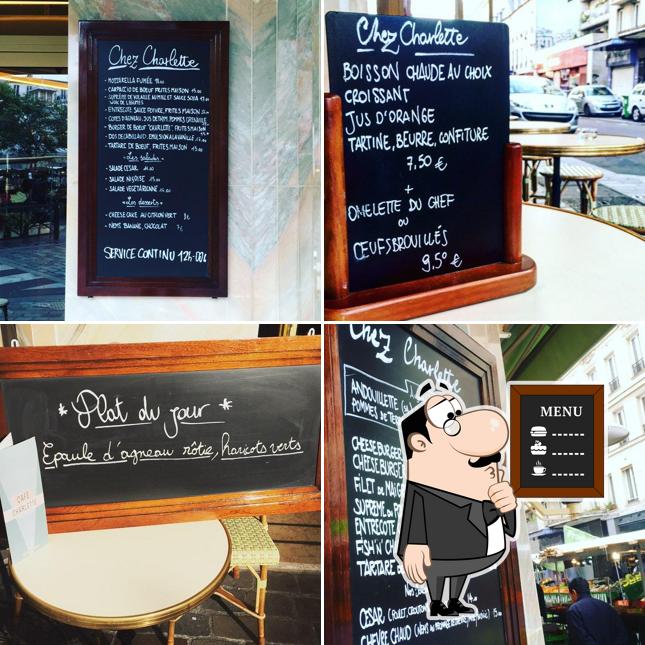 Chez Charlette
- MOZZARELLA FUMÉE
- CARPACCIO DE BOEUF, FRITES MAISON
- SUPRÊME DE VOLAILLE AU MIEL ET SAUCE SOJA
- ENTRECÔTE SAUCE POIVRE, FRITES MAISON
- BURGER DE BOEUF "CHARLETTE", FRITES MAISON
- DOS DE CABILLAUD, EMULSION A LA VANILLE
- TARTARE DE BOEUF, FRITES MAISON
- Les salades -
- SALADE CESAR
- SALADE NIÇOISE
- SALADE VEGETARIENNE
- Les desserts -
- CHEESE CAKE AU CITRON VERT
- NEMS BANANE, CHOCOLAT
SERVICE CONTINU 12h-00h
Chez Charlette
BOISSON CHAUDE AU CHOIX
CROISSANT
JUS D'ORANGE
TARTINE, BEURRE, CONFITURE
7,50 €
+
OMELETTE DU CHEF
OU
OEUFS BROUILLÉS
9,50 €
* Plat du jour *
Epaule d'agneau rôtie, haricots verts
CAFE
CHARLETTE
Chez Charlette
ANDOUILLETTE
POMMES DE TE
CHEESE BURGER
CHEESE BURGE
FILET DE
SUPREME DE
ENTRECOTE
FISH'N' CH
TARTARE
CESAR
CHEVRE CHAUD
MENU